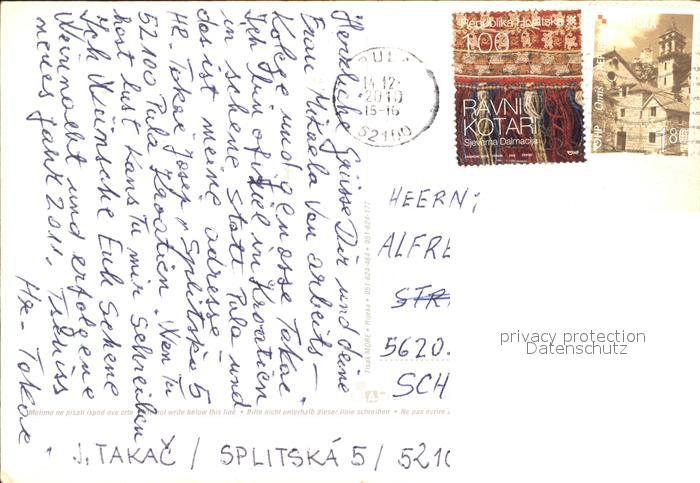 Herzliche Grüsse Dir und deine
Frau Mihaela Von arbeits-
Kolege und genosse Takač.
Ich bin oft viel in Kroatien
in schene Statt Pula und
das ist meine adresse -
HR- Takač Josef, Splitska 5
52100 Pula Kroatien. Wen Tu
hast lust kans Tu mir Schreiben
Ich Wünsche Euh Schene
Weinnacht und erfolgene
neues jahr 2011. Tschüss
HR- Takač
PULA
14.12.
2010
15-16
52100
Republika Hrvatska
1.00
RAVNI
KOTARI
Sjeverna Dalmacija
Omiš
1.80
HEERN;
ALFRE
STR
5620.
SCH
Tisak MORE • Rijeka • 051/624-464 • 051/624-177
Molimo ne pisati ispod ove crte • Do not write below this line • Bitte nicht unterhalb dieser linie schreiben • Ne pas écrire
J. TAKAČ / SPLITSKÁ 5 / 5210
privacy protection
Datenschutz